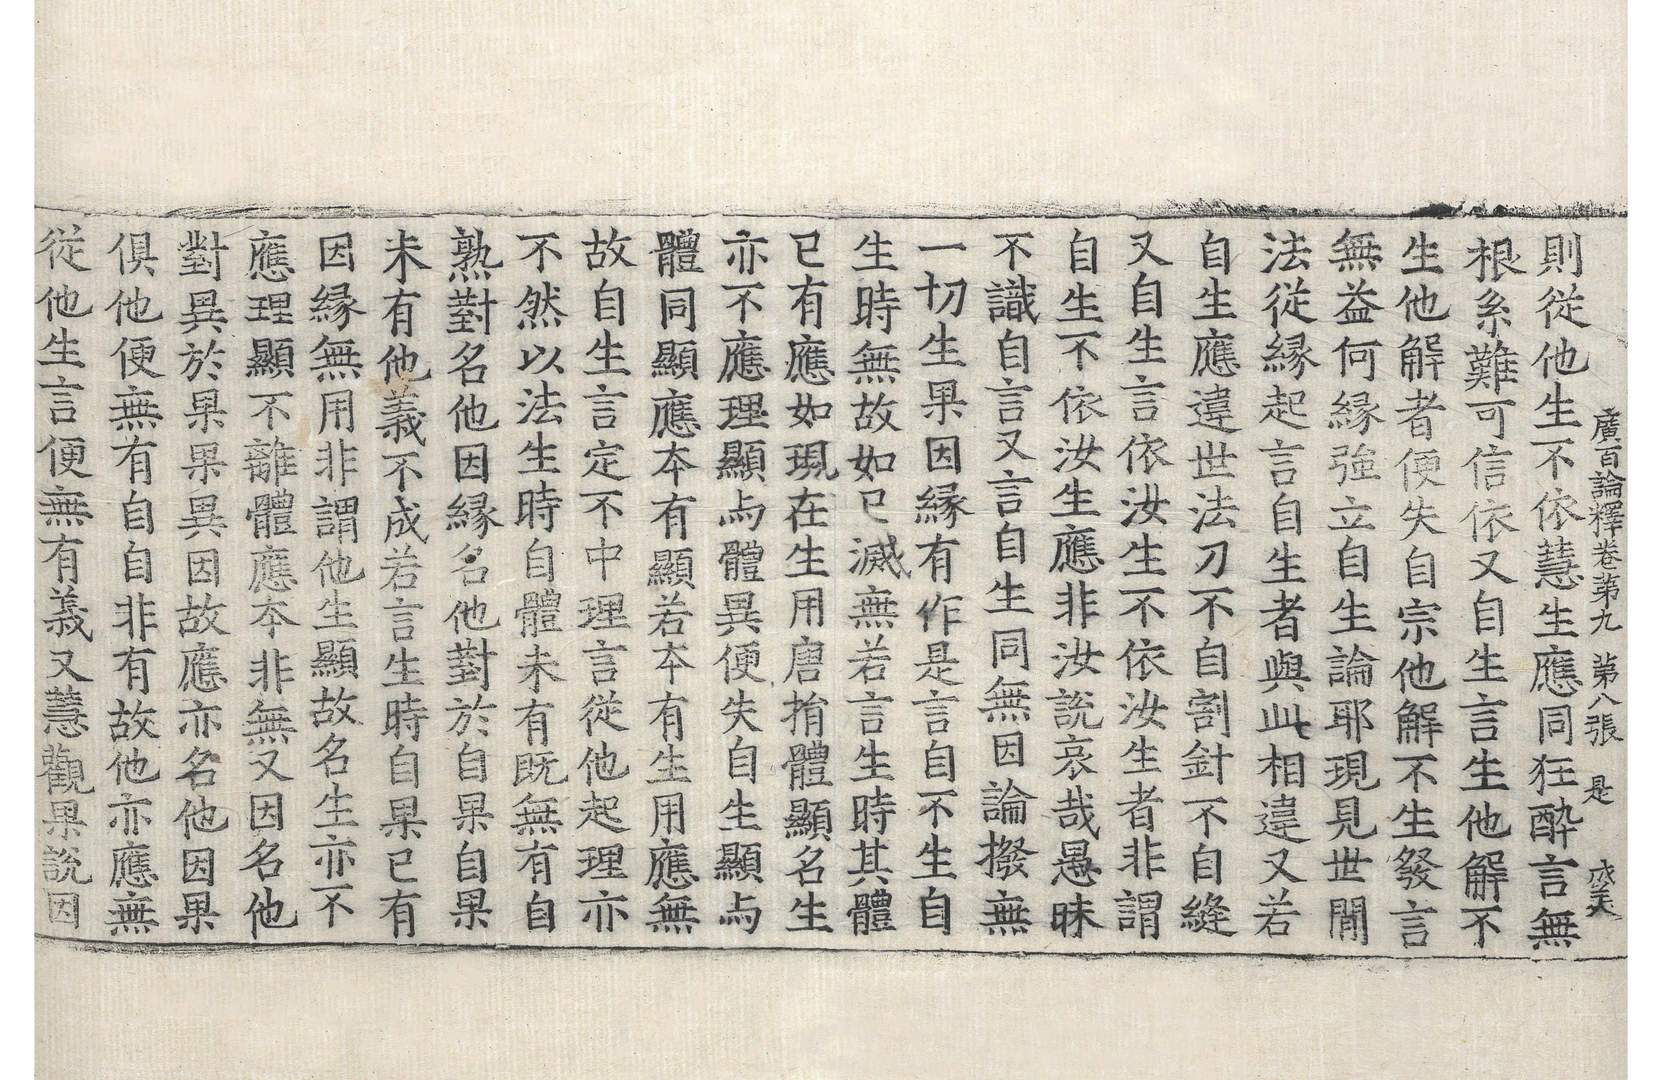 廣百論釋卷第九 第八張 是
則從他生不依慧生應同狂酔言無
根系難可信依又自生言生他解不
生他解者便失自宗他解不生發言
無益何縁強立自生論耶現見世閒
法從縁起言自生者與此相違又若
自生應違世法刀不自割針不自縫
又自生言依汝生不依汝生者非謂
自生不依汝生應非汝說哀哉愚昧
不識自言又言自生同無因論撥無
一切生果因縁有作是言自不生自
生時無故如已滅無若言生時其體
已有應如現在生用唐捐體顯名生
亦不應理顯與體異便失自生顯與
體同顯應本有顯若本有生用應無
故自生言定不中理言從他起理亦
不然以法生時自體未有既無有自
熟對名他因縁名他對於自果自果
未有他義不成若言生時自果已有
因縁無用非謂他生顯故名生亦不
應理顯不離體應本非無又因名他
對異於果果異因故應亦名他因果
俱他便無有自自非有故他亦應無
從他生言便無有義又慧觀果說因